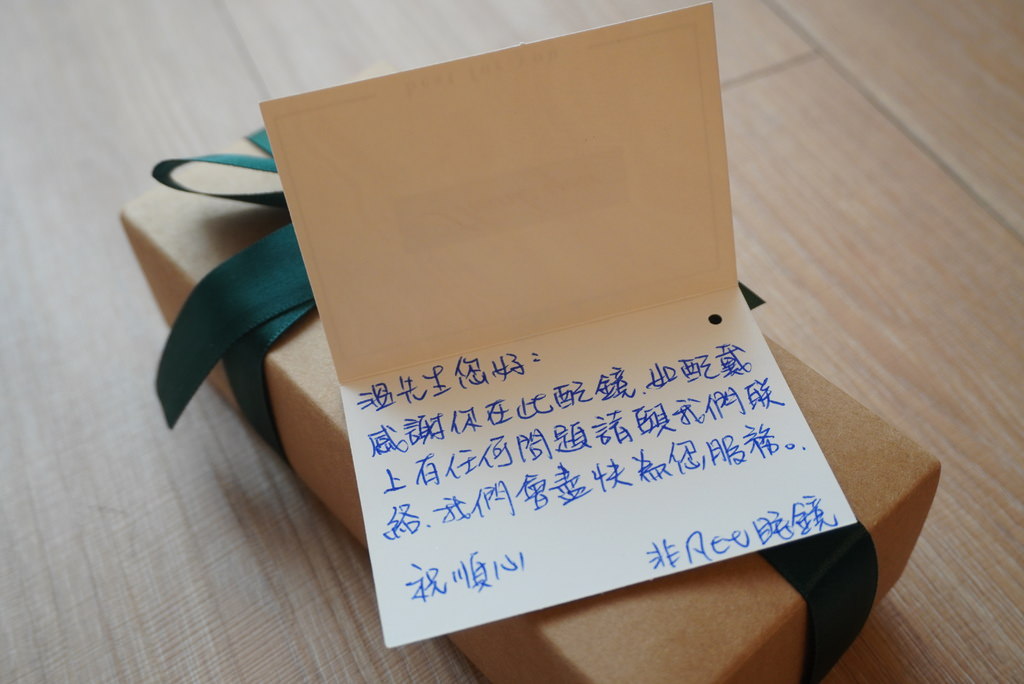 溫先生您好：
感謝你在此配鏡.如配戴
上有任何問題請願我們联
絡.我們會盡快為您服務。
祝順心
非凡眼鏡